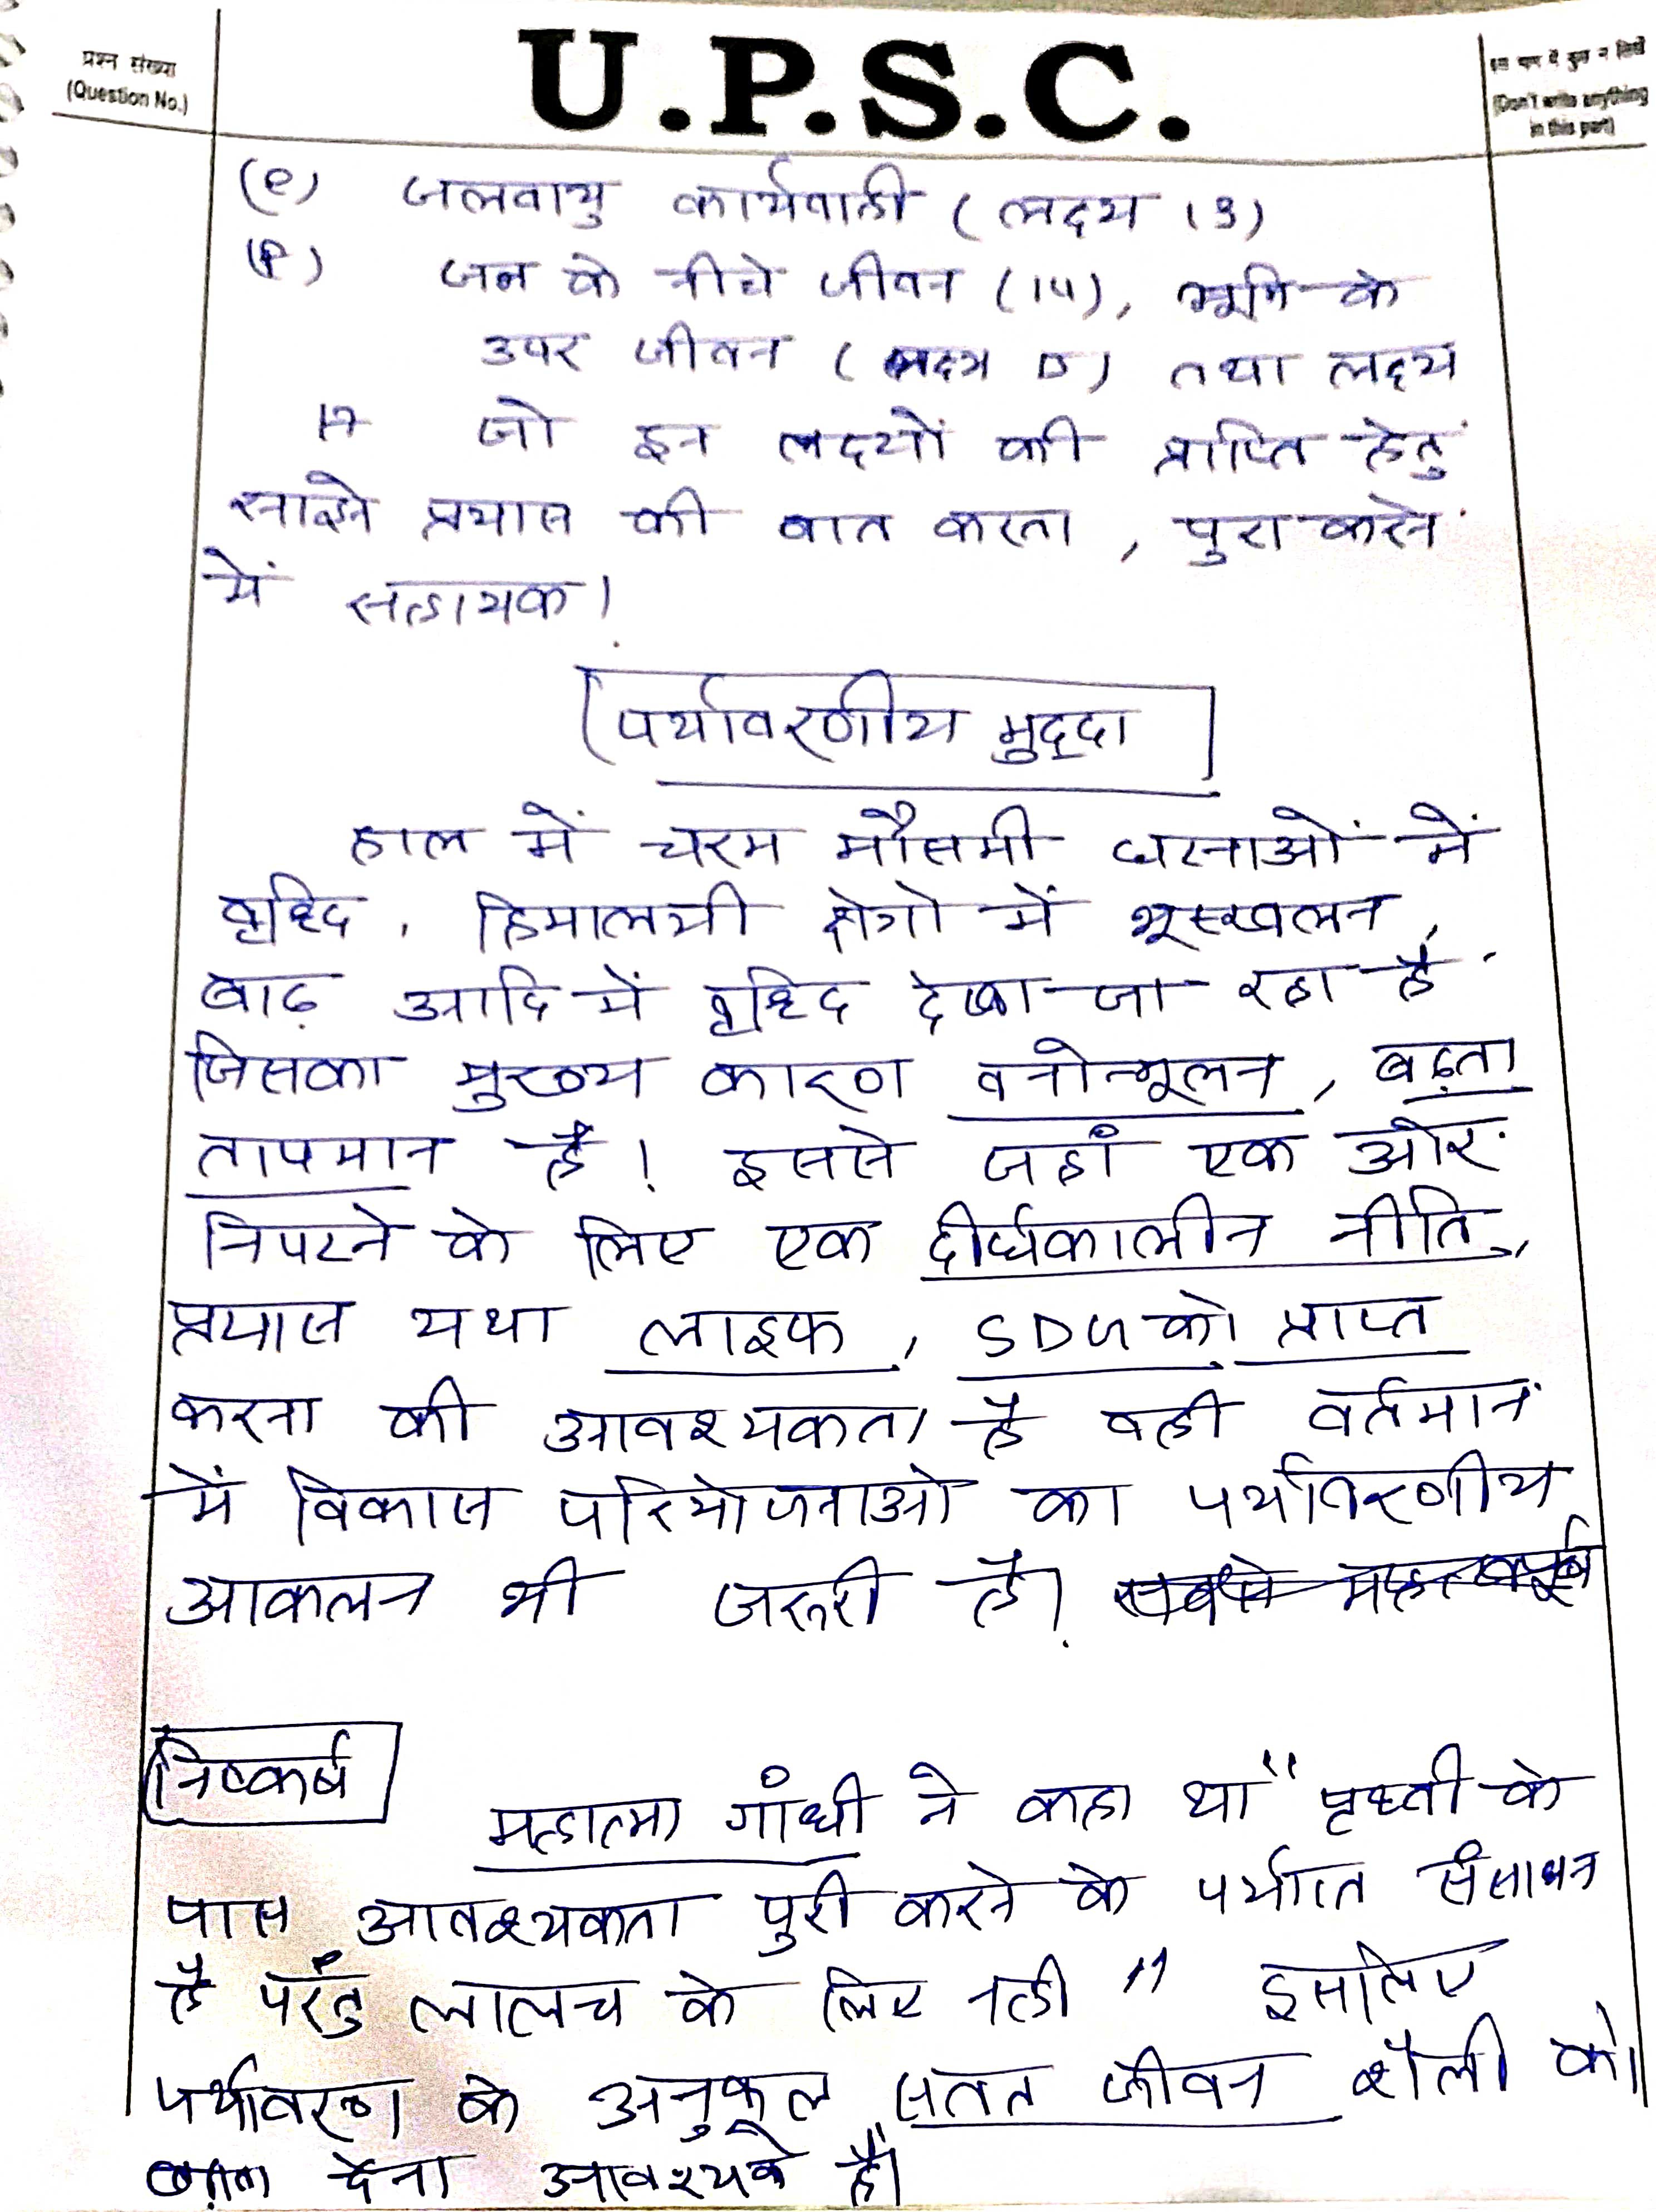 प्रश्न संख्या
(Question No.)
U.P.S.C.
इस भाग में कुछ न लिखें
(Don't write anything
in this part)
(e) जलवायु कार्यवाही (लक्ष्य 13)
(f) जल के नीचे जीवन (14), भूमि के
उपर जीवन (लक्ष्य 15) तथा लक्ष्य
17 जो इन लक्ष्यों की प्राप्ति हेतु
साझे प्रयास की बात करता, पुरा करने
में सहायक।
पर्यावरणीय मुद्दा
हाल में चरम मौसमी घटनाओं में
वृद्धि, हिमालयी क्षेत्रो में भूस्खलन,
बाढ़ आदि में वृद्धि देखा जा रहा है
जिसका मुख्य कारण वनोन्मूलन, बढ़ता
तापमान है। इससे जहां एक ओर
निपटने के लिए एक दीर्घकालीन नीति,
प्रयास यथा लाइफ, SDG को प्राप्त
करना की आवश्यकता है वही वर्तमान
में विकास परियोजनाओ का पर्यावरणीय
आकलन भी जरूरी है। सबसे महत्वपूर्ण
निष्कर्ष
महात्मा गांधी ने कहा था "पृथ्वी के
पास आवश्यकता पुरी करने के पर्याप्त संसाधन
है परंतु लालच के लिए नही" इसलिए
पर्यावरण के अनुकूल सतत जीवन शैली को
देना आवश्यक है।